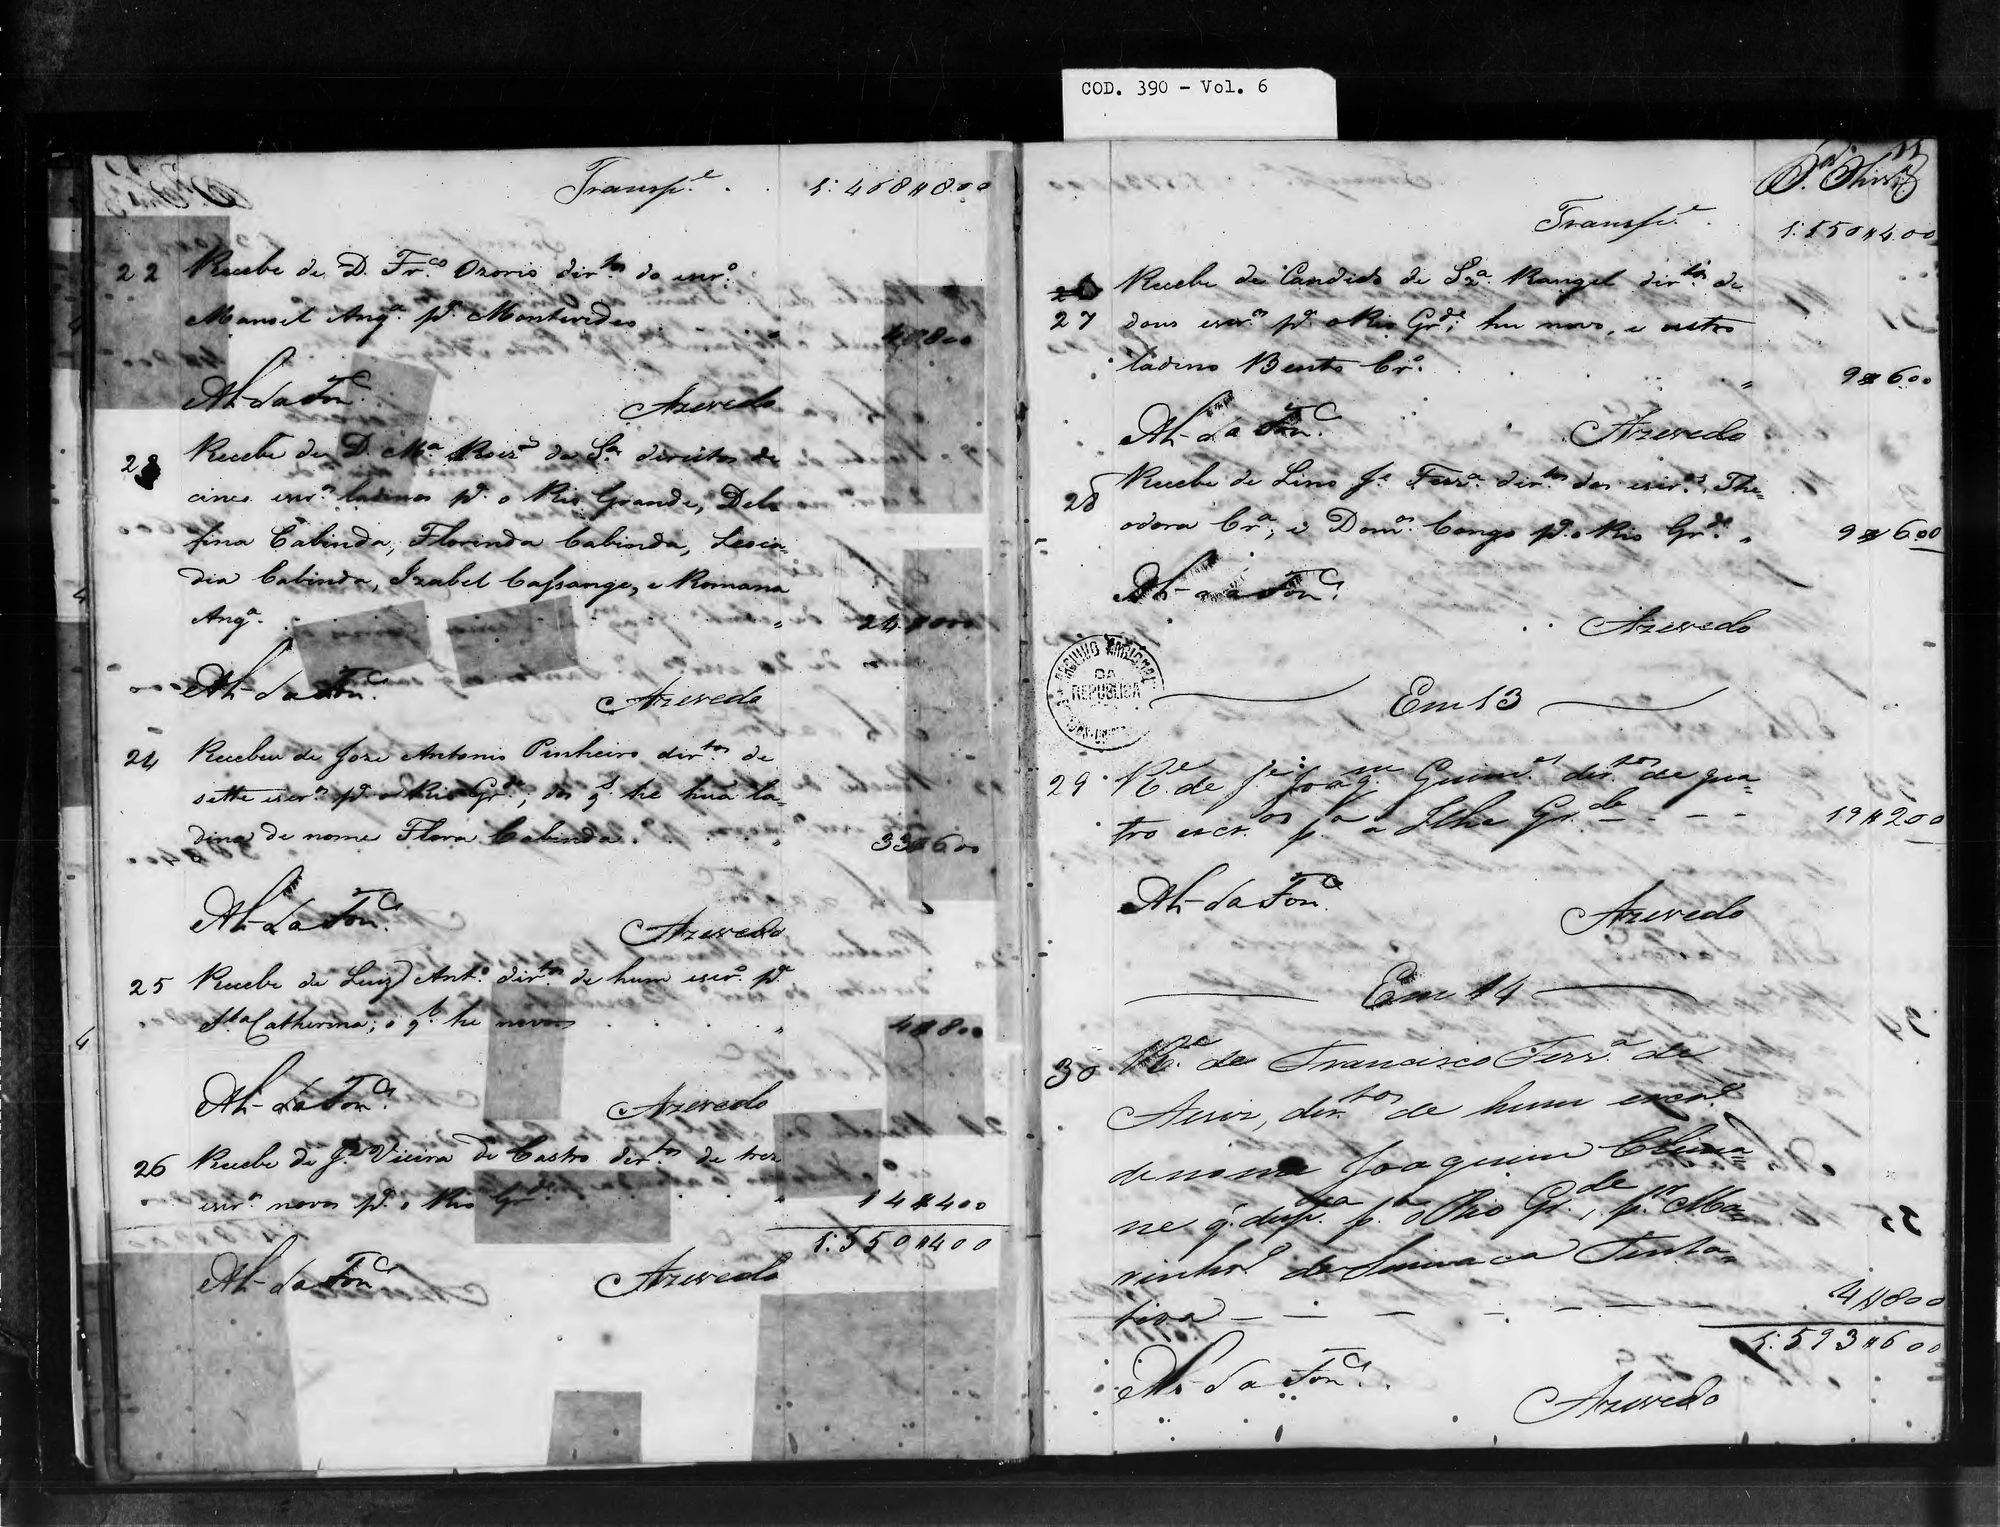 COD. 390 - Vol. 6
Transp.e . 1:468#800
22 Recebe de D. Fr.co Ozorio dir.tos do escr.o
Manoel Ang.a p.a Montevideo " 4#800
Al. da Fon.ca Azevedo
23 Recebe de D. M.a Roiz' da S.a direitos de
cinco escr.os ladinos p.a o Rio Grande, Del-
fina Cabinda, Florinda Cabinda, Leoca-
dia Cabinda, Izabel Cassange, e Romana
Ang.a " 24#000
Al. da Fon.ca Azevedo
24 Recebeu de Joze Antonio Pinheiro dir.tos de
sette escr.os p.a o Rio Gr.de, dos q.s he huã la-
dina de nome Flora Cabinda . " 33#600
Al. da Fon.ca Azevedo
25 Recebe de Luiz Ant.o dir.tos de hum escr.o p.a
S.ta Catherina; o q.l he novo " 4#800
Al. da Fon.ca Azevedo
26 Recebe de J.e Vieira de Castro dir.tos de trez
escr.os novos p.a o Rio Gr.de " 14#400
1:550#400
Al. da Fon.ca Azevedo
11
Transp.e . 1:550#400
27 Recebe de Candido de Sz.a Rangel dir.tos de
dous escr.os p.a o Rio Gr.de; hu novo, e outro
ladino Bento Cr.o " 9#600
Al. da Fon.ca Azevedo
28 Recebe de Lino J.e Ferr.a dir.tos dos escr.os, The-
odora Cr.a, e Dom.os Congo p.a o Rio Gr.de " 9#600
Al. da Fon.ca
Azevedo
ARCHIVO NACIONAL
DA
REPUBLICA
Em 13
29 R.e de J.e Joaq.m Guim.es dir.tos de qua-
tro escr.os p.a a Ilha Gr.de - - - 19#200
Al. da Fon.ca
Azevedo
Em 14
30 R.e de Francisco Ferr.a de
Assis, dir.tos de hum escr.o
de nome Joaquim
ne q. desp.a p.a o Rio Gr.de, p.r Ma-
rinhr.o da Sumaca Tenta-
tiva - - - - - - 4#800
1:593#600
Al. da Fon.ca
Azevedo